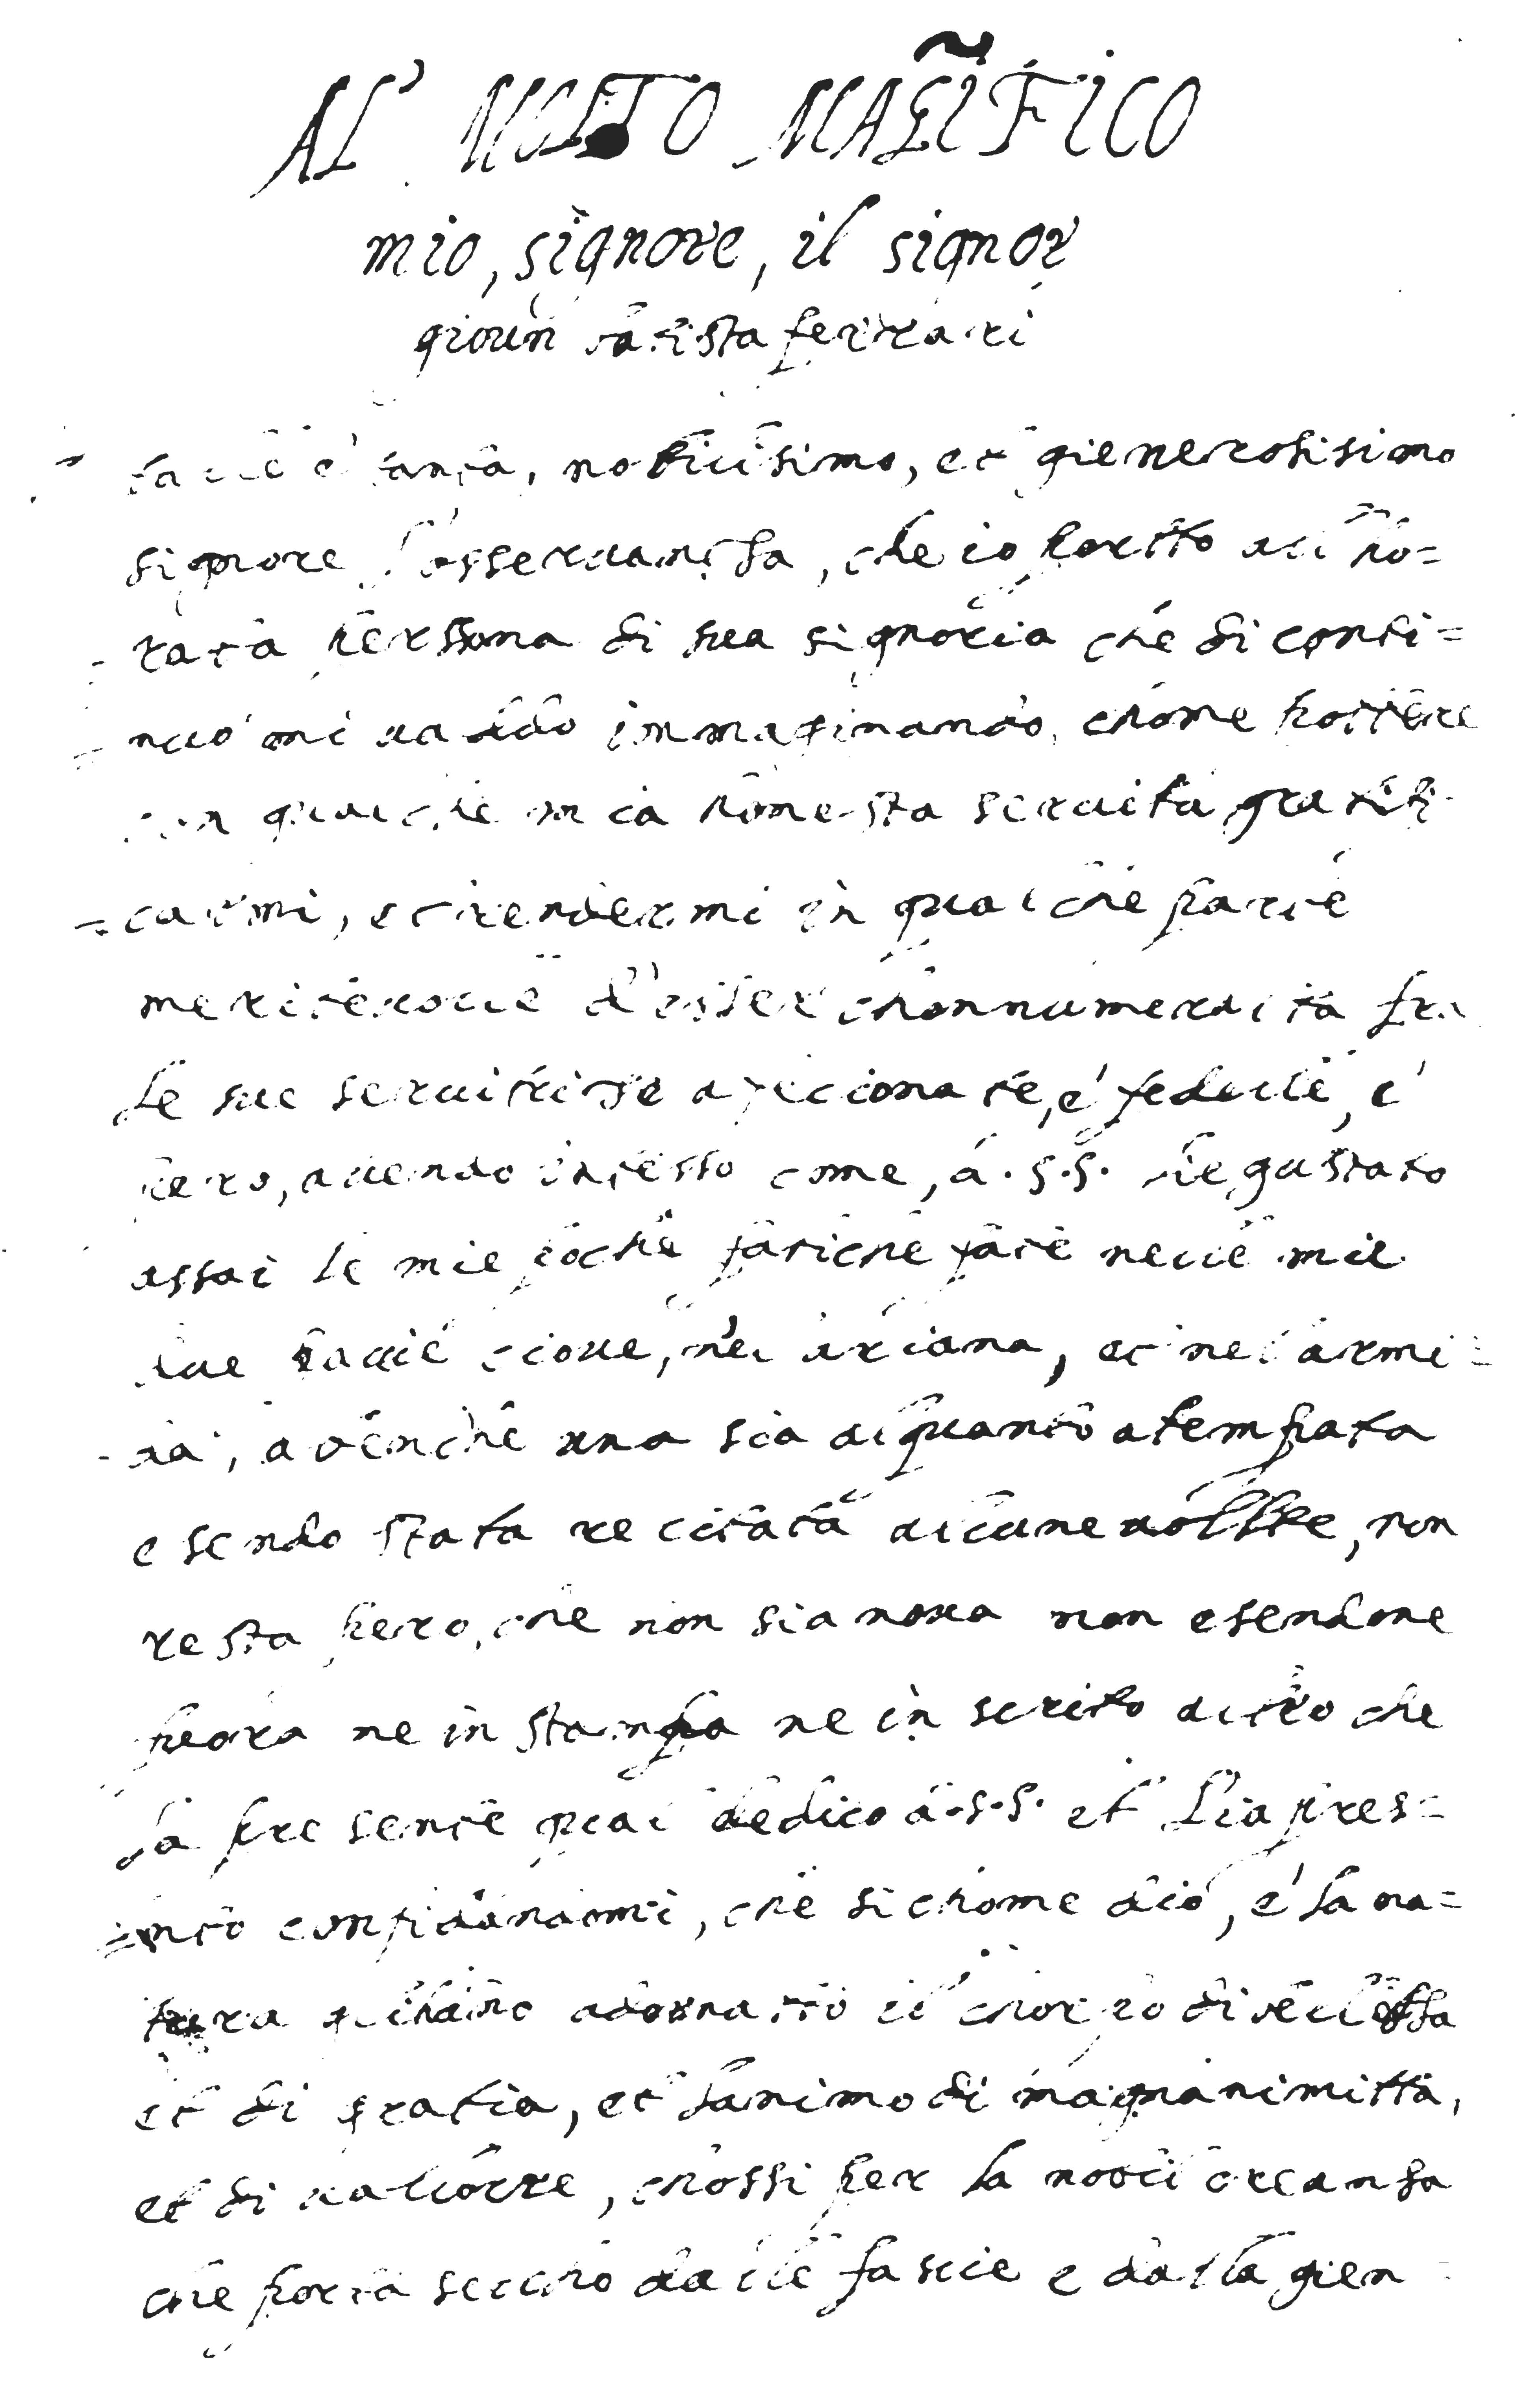 AL' MOLTO MAG̃IFICO
mio, signore, il signor
giovan batista ferrari
tale è tanta, nobilissimo, et gienerosisimo
signore l'osservantsa, che io porto all ho=
=rata perssona di sua signoria che di conti=
=nuo mi vaddo immaginando, chome pottere
con qualche mia honesta servitù gratifi=
=carmi, et rendermi in qualche parte
meritevolle d'esser chonnumeraita fra
le sue servitrice afecionate, e' fedelle, e'
pero, avendo inteso come, á .S.S. he gustato
assai le mie poche fatiche fate nelle mie
due favvle cioue, nel ariana, et nel armi=
=da, a benche una sia alquanto atempata
esendo stata recitata alcune vollte, non
resta pero, che non sia nova non esendone
fuora ne in stampa ne in scrito altro che
la presente qual dedico á .S.S. et lla pres=
=ento confidandomi, che si chome dio, e' la na=
tura gli hano adornatto il chorpo di bellessa
et di gratia, et l'animo di magnanimitta,
et di vallorre, chossi per la nobil creansa
che porta seccho dalle fascie e dalla gien=